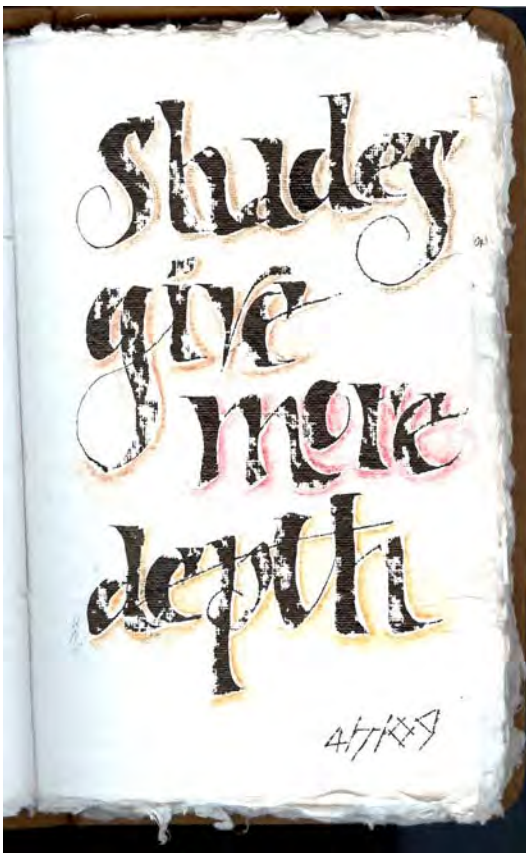 Shades
give
more
depth
4/7/09